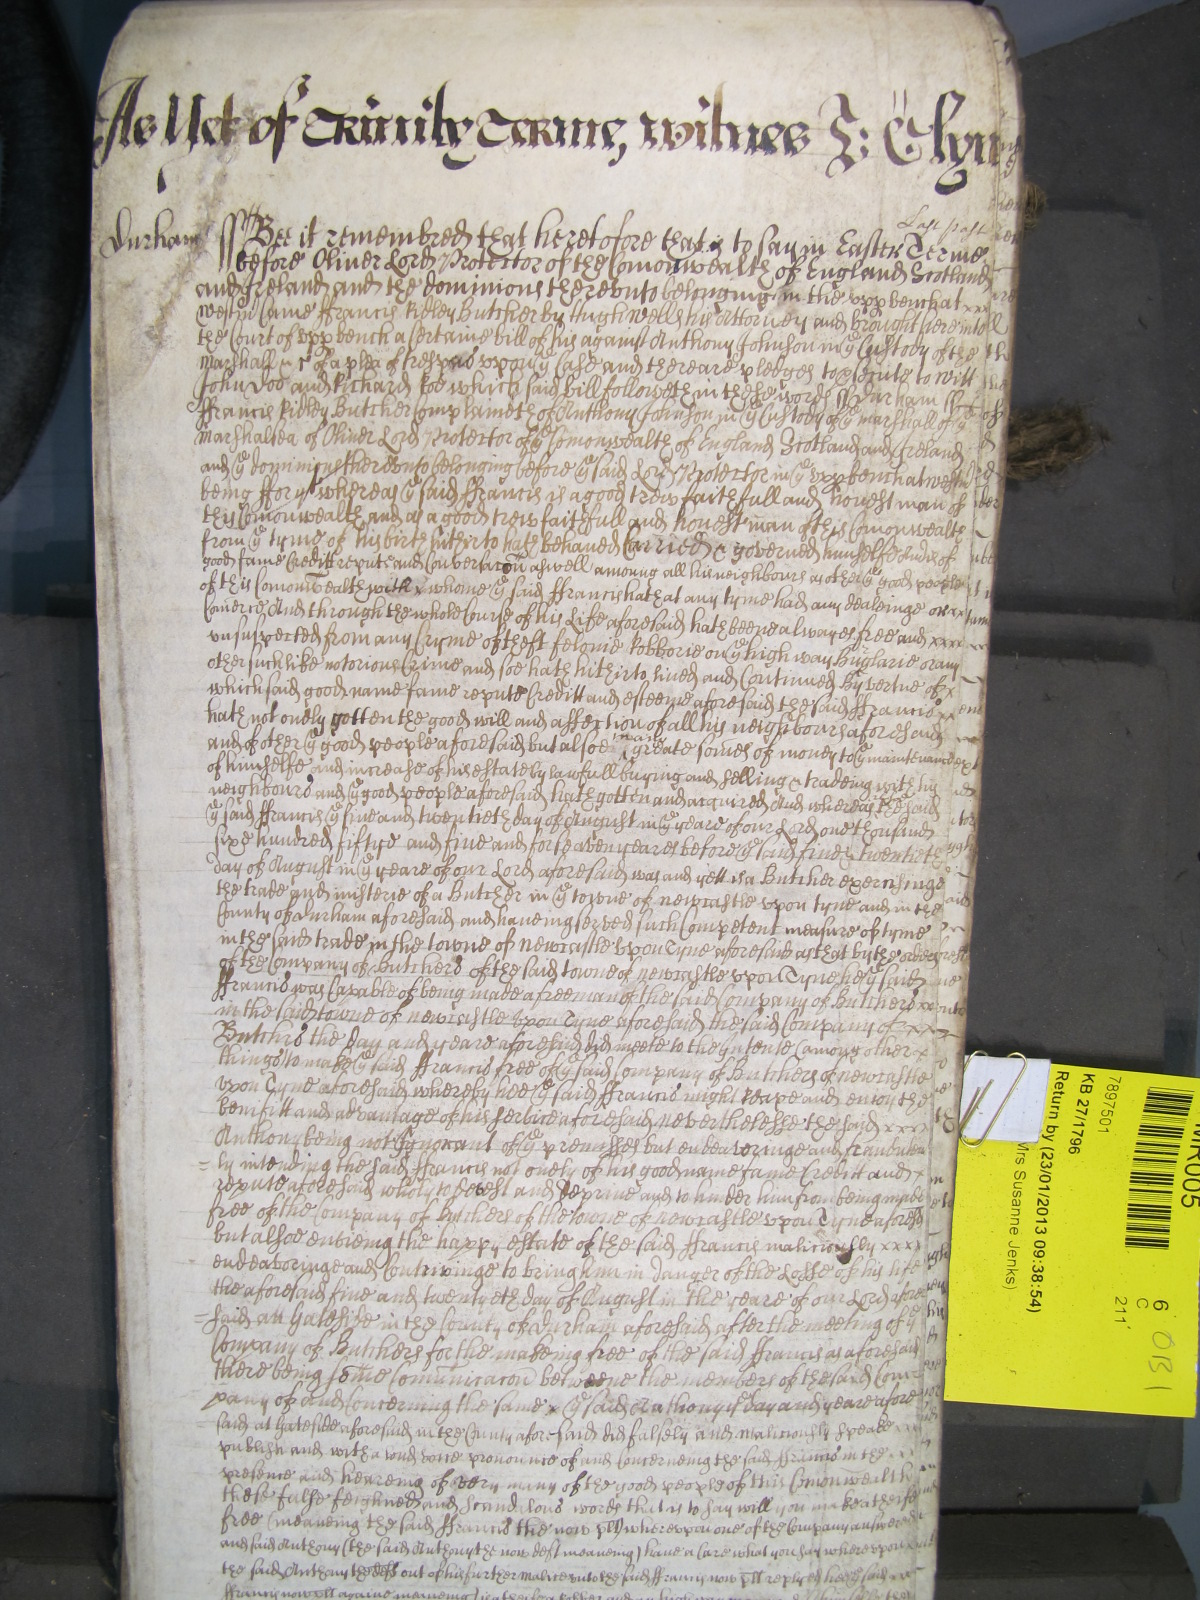 As Yet of Trinity Terme, witnes J: Glyn
Durham ss Bee it remembred that heretofore that is to say in Easter Terme
Last past
before Oliver Lord Protector of the Comonwealth of England Scotland
and Ireland and the dominions thereunto belonging in the upp bench at
westm Came ffrancis Ridley Butcher by Hugh wells his Attorney and brought here into
the Court of upp bench a certaine bill of his against Anthony Johnson in ye Custody of the
Marshall &c of a plea of trespas upon ye Case and there are pledges to psecute to witt
John Doe and Richard Roe which said bill followeth in these words ss Durham ss
ffrancis Ridley Butcher Complaineth of Anthony Johnson in ye Custody of ye marshall of ye
marshalsea of Oliver Lord Protector of ye Comonwealth of England Scotland and Ireland
and ye dominions thereunto belonging before ye said Lord Protector in ye upp bench at westm
being ffor yt whereas ye said ffrancis is a good trew faithfull and honest man of
this Comonwealth and as a good trew faithfull and honest man of this Comonwealth
from ye tyme of his birth hitherto hath behaved Carried & governed himselfe and is of
good fame Creditt repute and Conversacon aswell amoung all his neighbours as other ye good people
of this Comonwealth with whome ye said ffrancis hath at any tyme had any dealeinge or
Comerce And through the whole Course of his Life aforesaid hath beene alwayes free and
unsuspected from any Cryme of theft felonie Robborie on ye high way Burglarie or any
other such like notorious Crime and soe hath hitherto lived and Continued By vertue of
which said good name fame repute Creditt and esteeme aforesaid the said ffrancis
hath not onely gotten the good will and affection of all his neighbours aforesaid
and of other ye good people aforesaid but alsoe many greate somes of money to ye maintenance
of himselfe and increase of his estate by lawfull buying and selling & tradeing with his
neighbours and ye good people aforesaid hath gotten and acquired And whereas the said
ye said ffrancis ye five and twentieth day of August in ye yeare of our Lord one thousand
sixe hundred fiftye and five and for seaven yeares before ye said five & twentieth
day of August in ye yeare of our Lord aforesaid was and yett is a Butcher exerciseinge
the trade and misterie of a Butcher in ye towne of newcastle upon tyne and in the
County of Durham aforesaid and haveing served such Competent measure of tyme
in the said trade in the towne of newcastle upon Tyne aforesaid as that by the orders
of the Company of Butchers of the said towne of newcastle upon Tyne he ye said
ffrancis was Capable of being made a freeman of the said Company of Butchers
in the said towne of newcastle upon Tyne aforesaid the said Company of
Butchers the day and yeare aforesaid did meete to the Intente (among other
things) to make ye said ffrancis free of ye said Company of Butchers of newcastle
upon Tyne aforesaid whereby hee ye said ffrancis might reape and enjoy the
benifitt and advantage of his service aforesaid neverthelesse the said
Anthony being not Ignorant of ye premisses but endeavoringe and fraudulent
=ly intending the said ffrancis not onely of his good name fame Creditt and
repute aforesaid wholy to devest and deprive and to hinder him from being made
free of the Company of Butchers of the towne of newcastle upon Tyne aforesd
but alsoe envieing the happy estate of the said ffrancis maliciously
endeavoringe and Contrivinge to bring him in danger of the Losse of his life
the aforesaid five and twentyeth day of August in the yeare of our Lord afore
=said att Gateside in the County of Durham aforesaid after the meeting of ye
Company of Butchers for the makeing free of the said ffrancis as aforesaid
there being some Comunicacon betweene the members of the said Com=
pany of and Concerning the same ye said Anthony ye day and yeare afore
said at Gateside aforesaid in the County aforesaid did falsely and maliciously speake
publish and with a loud voice pronounce of and Concerneing the said ffrancis in the
presence and heareing of very many of the good people of this Comonwealth
these false feighned and scandalous words that is to say will you make a theife
free (meaneing the said ffrancis the now plt) whereupon one of the Company answered
and said Anthony (the said Anthony the now deft meaneing) have a care what you say whereupon
the said Anthony the deft out of his further malice unto the said ffrancis now plt replyed
KB 27/1796
7897501
Return by (23/01/2013 09:38:54)
Mrs Susanne Jenks)
MR005
6
C
211